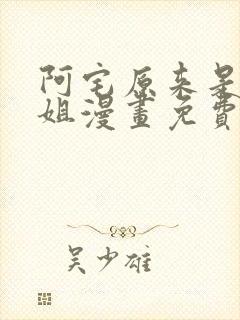 阿宅原来是
姐漫畫免費
吴少雄